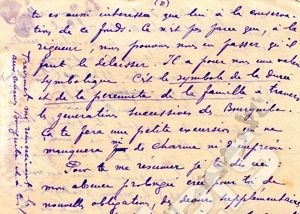 (8)
tu es aussi intéressé que lui à la conserva-
tion de ce fonds. Ce n'est pas parce que, à la
rigueur, nous pouvons nous en passer qu'il
faut le délaisser. Il a pour nous une valeur
symbolique. C'est le symbole de la durée
et de la pérennité de la famille à travers
les générations successives de Bourguiba.
Ça te fera une petite excursion, qui ne
manquera ni de charme ni d'imprévu.
Pour me résumer je te dis que
mon absence prolongée crée pour toi de
nouvelles obligations, des devoirs supplémentaires